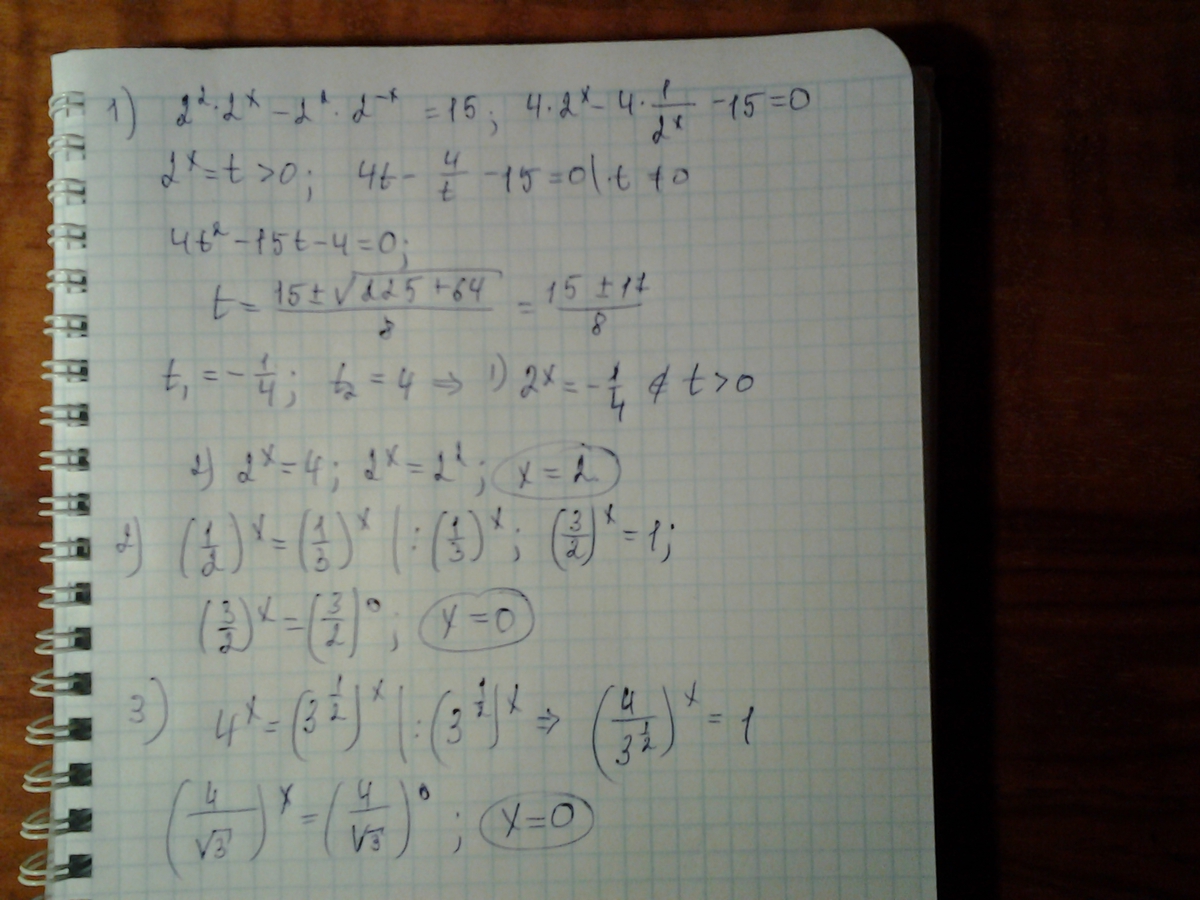 1) 2²·2ˣ - 2²·2⁻ˣ = 15; 4·2ˣ - 4·1/2ˣ - 15 = 0
2ˣ = t > 0; 4t - 4/t - 15 = 0 |·t ≠ 0
4t² - 15t - 4 = 0;
t = (15 ± √(225 + 64))/8 = (15 ± 17)/8
t₁ = -1/4; t₂ = 4 ⇒ 1) 2ˣ = -1/4 ∉ t > 0
2) 2ˣ = 4; 2ˣ = 2²; x = 2
2) (1/2)ˣ = (1/3)ˣ | : (1/3)ˣ; (3/2)ˣ = 1;
(3/2)ˣ = (3/2)⁰; x = 0
3) 4ˣ = (3^(1/2))ˣ | : (3^(1/2))ˣ ⇒ (4/3^(1/2))ˣ = 1
(4/√3)ˣ = (4/√3)⁰; x = 0